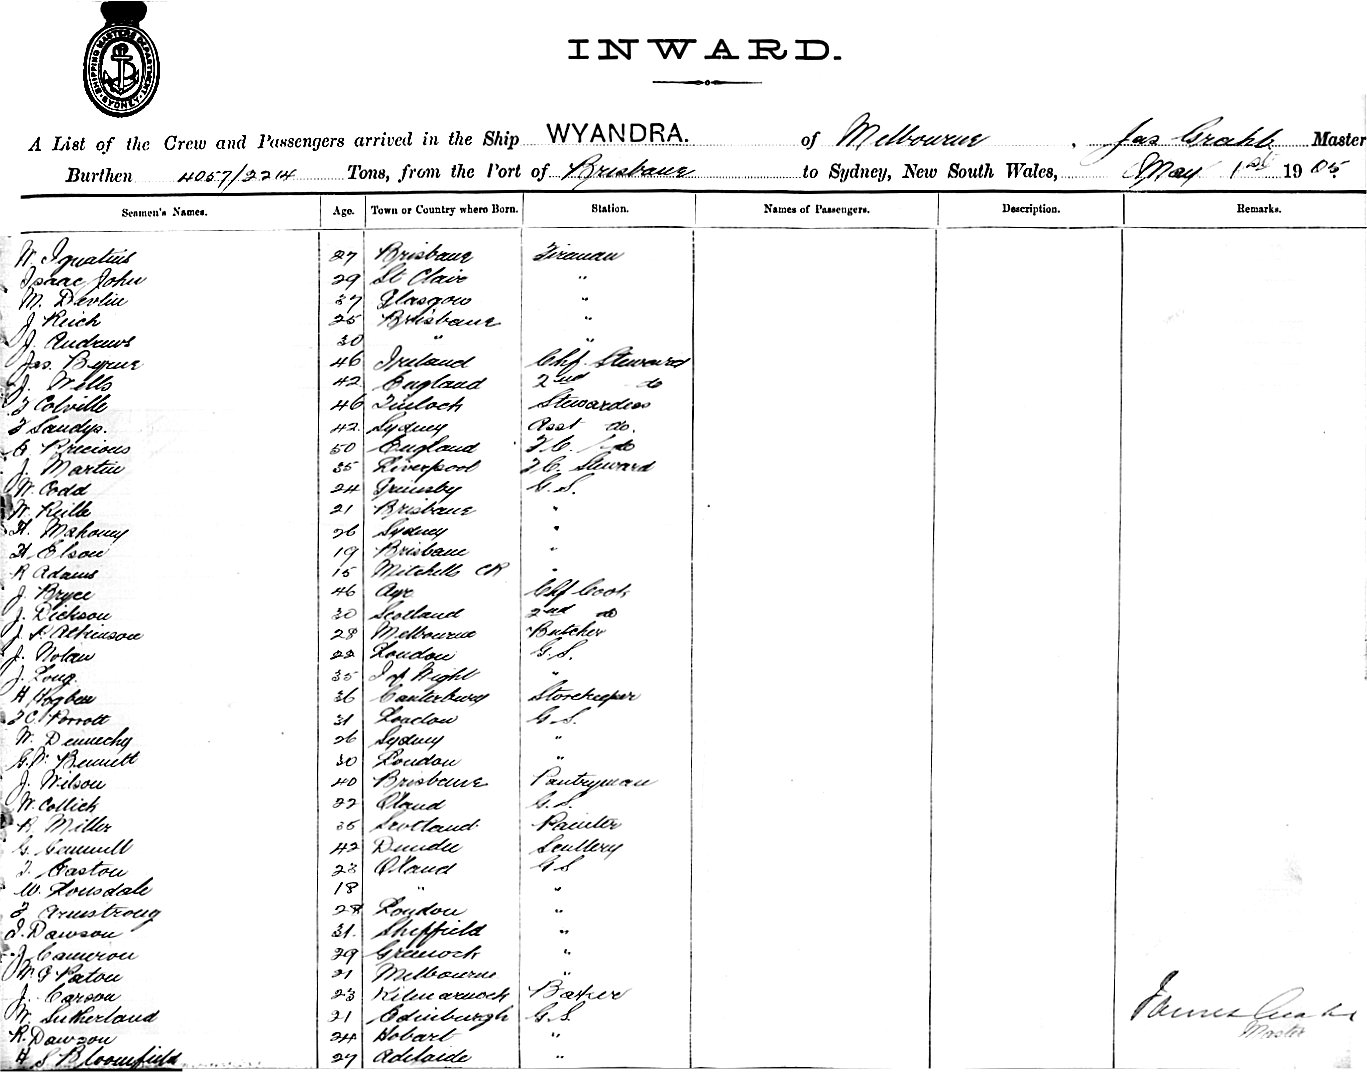 SHIPPING MASTERS DEPARTMENT SYDNEY
INWARD.
A List of the Crew and Passengers arrived in the Ship WYANDRA. of Melbourne, Jas Master
Burthen 4057/2214 Tons, from the Port of Brisbane to Sydney, New South Wales, May 1st 1905
Seamen's Names. Age. Town or Country where Born. Station. Names of Passengers. Description. Remarks.
W. Ignatius 27 Brisbane Fireman
Isaac John 29 St Clair "
M. Devlin 37 Glasgow "
J. Reich 25 Brisbane "
J. Andrews 30 " "
Jas. Byrne 46 Ireland Chf. Steward
J. Wells 42 England 2nd do
F Colville 46 Stewardess
F Sandys. 42 Sydney Asst do.
Precious 50 England F.C. do
J. Martin 35 Liverpool F.C. Steward
W. Codd 24 Grimsby G.S.
W. 21 Brisbane "
H. Mahony 26 Sydney "
H Elson 19 Brisbane "
R Adams 15 Mitchell "
J. Bryce 46 Ayr Chf Cook
J. Dickson 30 Scotland 2nd do
J. Atkinson 28 Melbourne Butcher
J. Nolan 22 London G.S.
J. Long 35 I of Wight "
H Hogben 36 Canterbury Storekeeper
F C. Porrott 31 London G.S.
W. Dennechy 26 Sydney "
G.W. Bennett 30 London "
J. Wilson 40 Brisbane Pantryman
W. Collick 22 Qland G.S.
R Miller 35 Scotland Painter
G. 42 Dundee Scullery
T. Easton 23 Qland G S
W. Lonsdale 18 " "
F Armstrong 28 London "
J. Dawson 31 Sheffield "
J. Cameron 29 Greenock "
W G Paton 21 Melbourne "
J. Carson 23 Kilmarnock Barker
W. Sutherland 21 Edinburgh G.S.
James
Master
R. Dawson 24 Hobart "
H S Bloomfield 27 Adelaide "